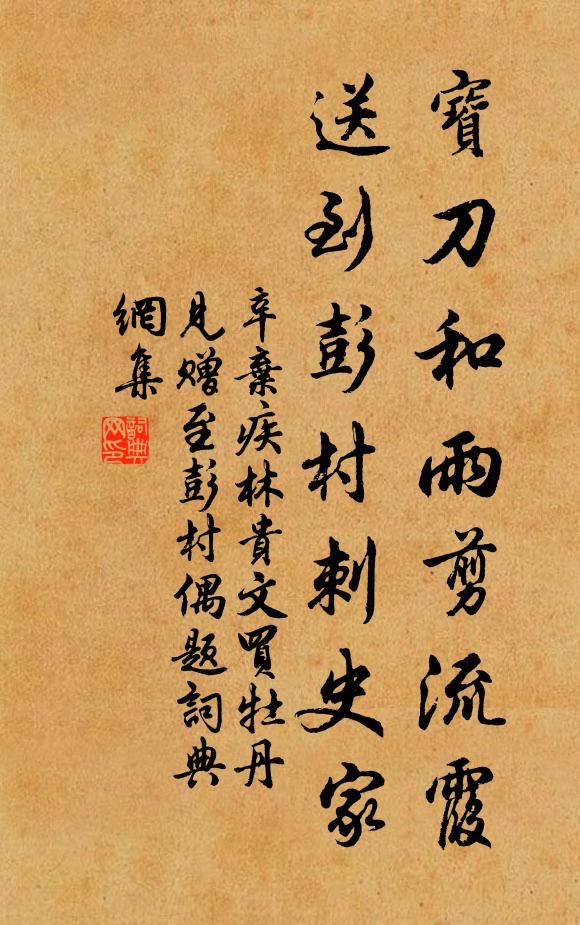 寶刀和雨剪流霞
送到彭村刺史家
辛棄疾林貴文買牡丹
見贈至彭村偶題詞典
網集
詞典
网印